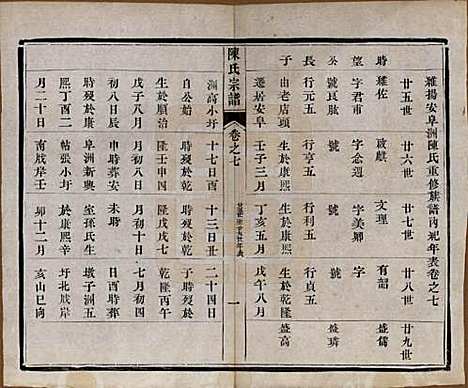 維揚安阜洲陳氏重修族譜內紀年表卷之七
廿五世 廿六世 廿七世 廿八世 廿九世
時雍佐 啟戲 文理 有韶 盛儒
望字君甫 字念迥 字美卿 字 盛璘
公號良脉 號 號 號 盛高
長行元五 行亨五 行利五 行貞五
子由老店頭 生於康熙 生於康熙 生於乾隆
遷居安阜 壬子三月 丁亥五月 戊午八月
陳氏宗譜
卷之七
一
洲高小圩 十七日酉 十三日 二十四日
自公始 時歿於乾 歿於乾 子時歿於
生於順治 隆壬申四 隆戊戌七 乾隆丙午
戊子八月 月初十日 月初四 七月初四
初八日辰 申時葬安 未時 日酉時葬
時歿於康 阜洲新興 室孫氏生 墩子洲五
熙丁酉二 帖張小圩 於康熙辛 圩北戧岸
月二十日 南戧岸壬 卯十二月 亥山巳向